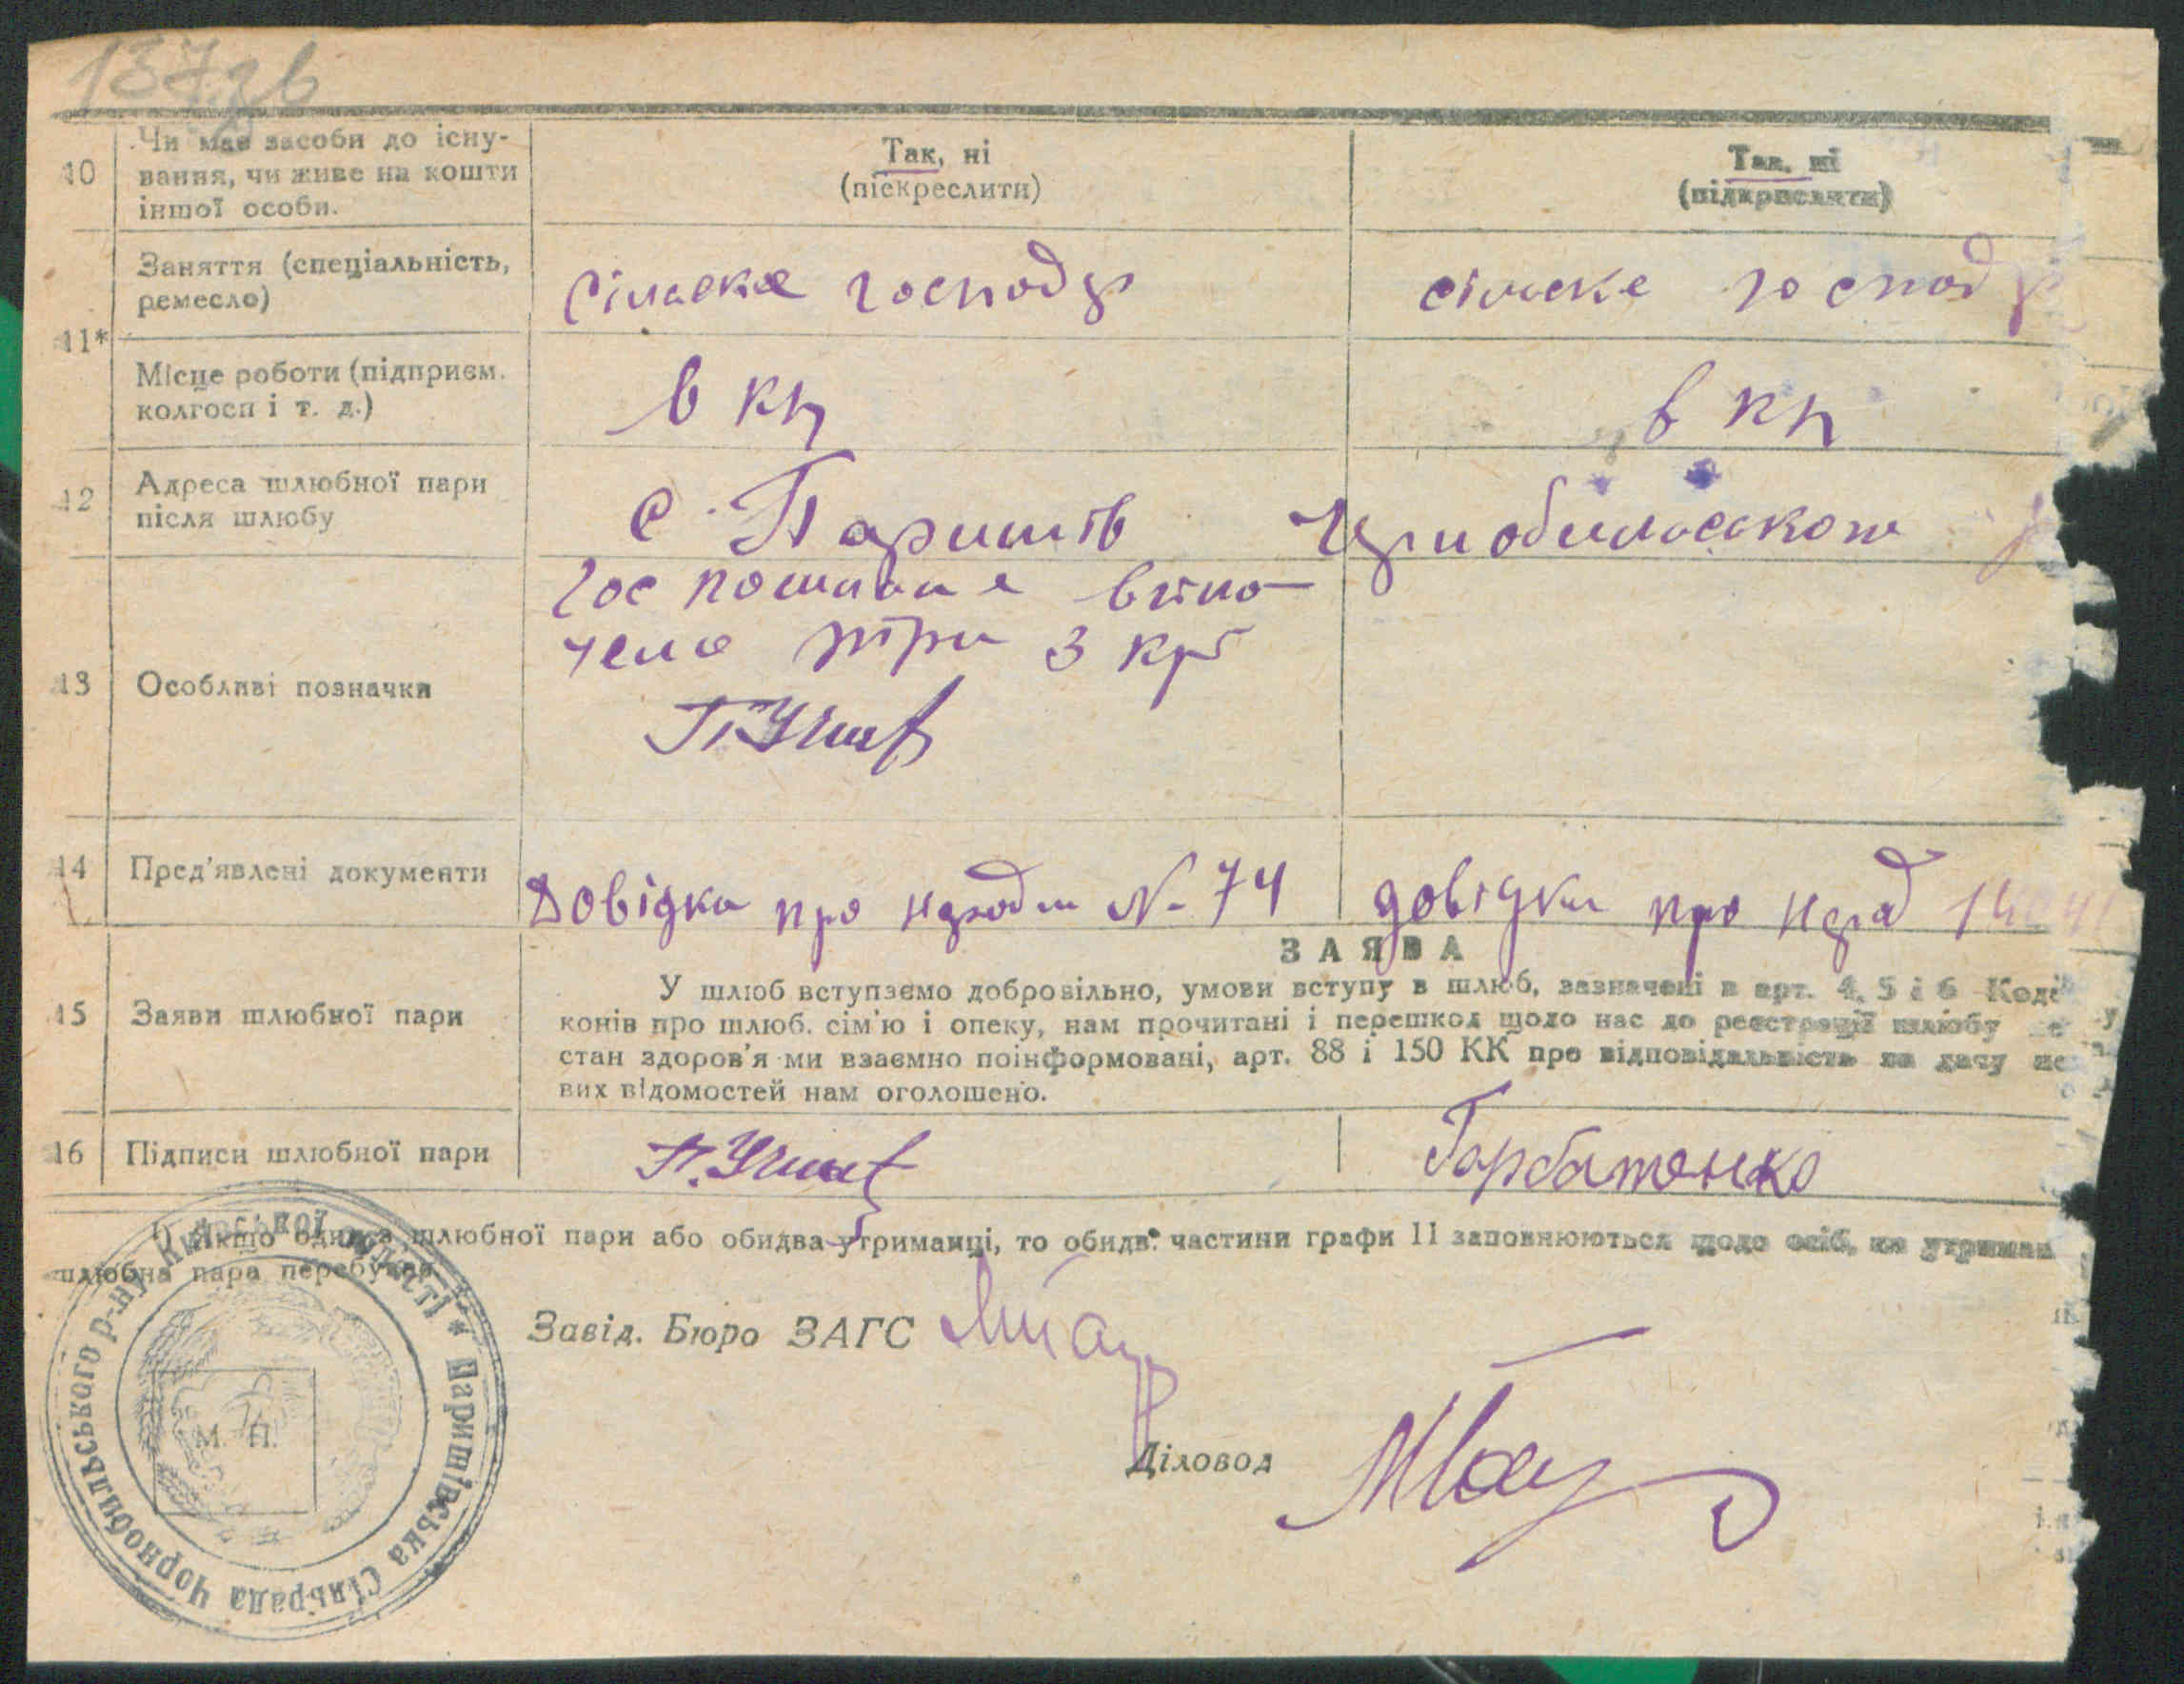 137 зв
10 Чи має засоби до існу-
вання, чи живе на кошти
іншої особи.
Так, ні
(піскреслити)
Так, ні
(підкреслити)
11*
Заняття (спеціальність,
ремесло)
сільське господр
сільске господ
Місце роботи (підприєм.
колгосп і т. д.)
в кп
в кп
12 Адреса шлюбної пари
після шлюбу
с. Паришів Чорнобильського
13 Особливі позначки
Гос пошлина
три 3 крб
14 Пред'явлені документи
Довідка про народж № 74
довідка про народ
ЗАЯВА
15 Заяви шлюбної пари
У шлюб вступаємо добровільно, умови вступу в шлюб, зазначені в арт. 4, 5 і 6 Коде
конів про шлюб. сім'ю і опеку, нам прочитані і перешкод щодо нас до реєстрації шлюбу не
стан здоров'я ми взаємно поінформовані, арт. 88 і 150 КК про відповідальність за дачу не
вих відомостей нам оголошено.
16 Підписи шлюбної пари
Горбатенко
*) Якщо один з шлюбної пари або обидва утриманці, то обидві частини графи 11 заповнюються щодо осіб, на утриман
шлюбна пара перебуває
Завід. Бюро ЗАГС
Діловод
М. П.
Паришівська Сільрада Чорнобильського р-ну Київської області *